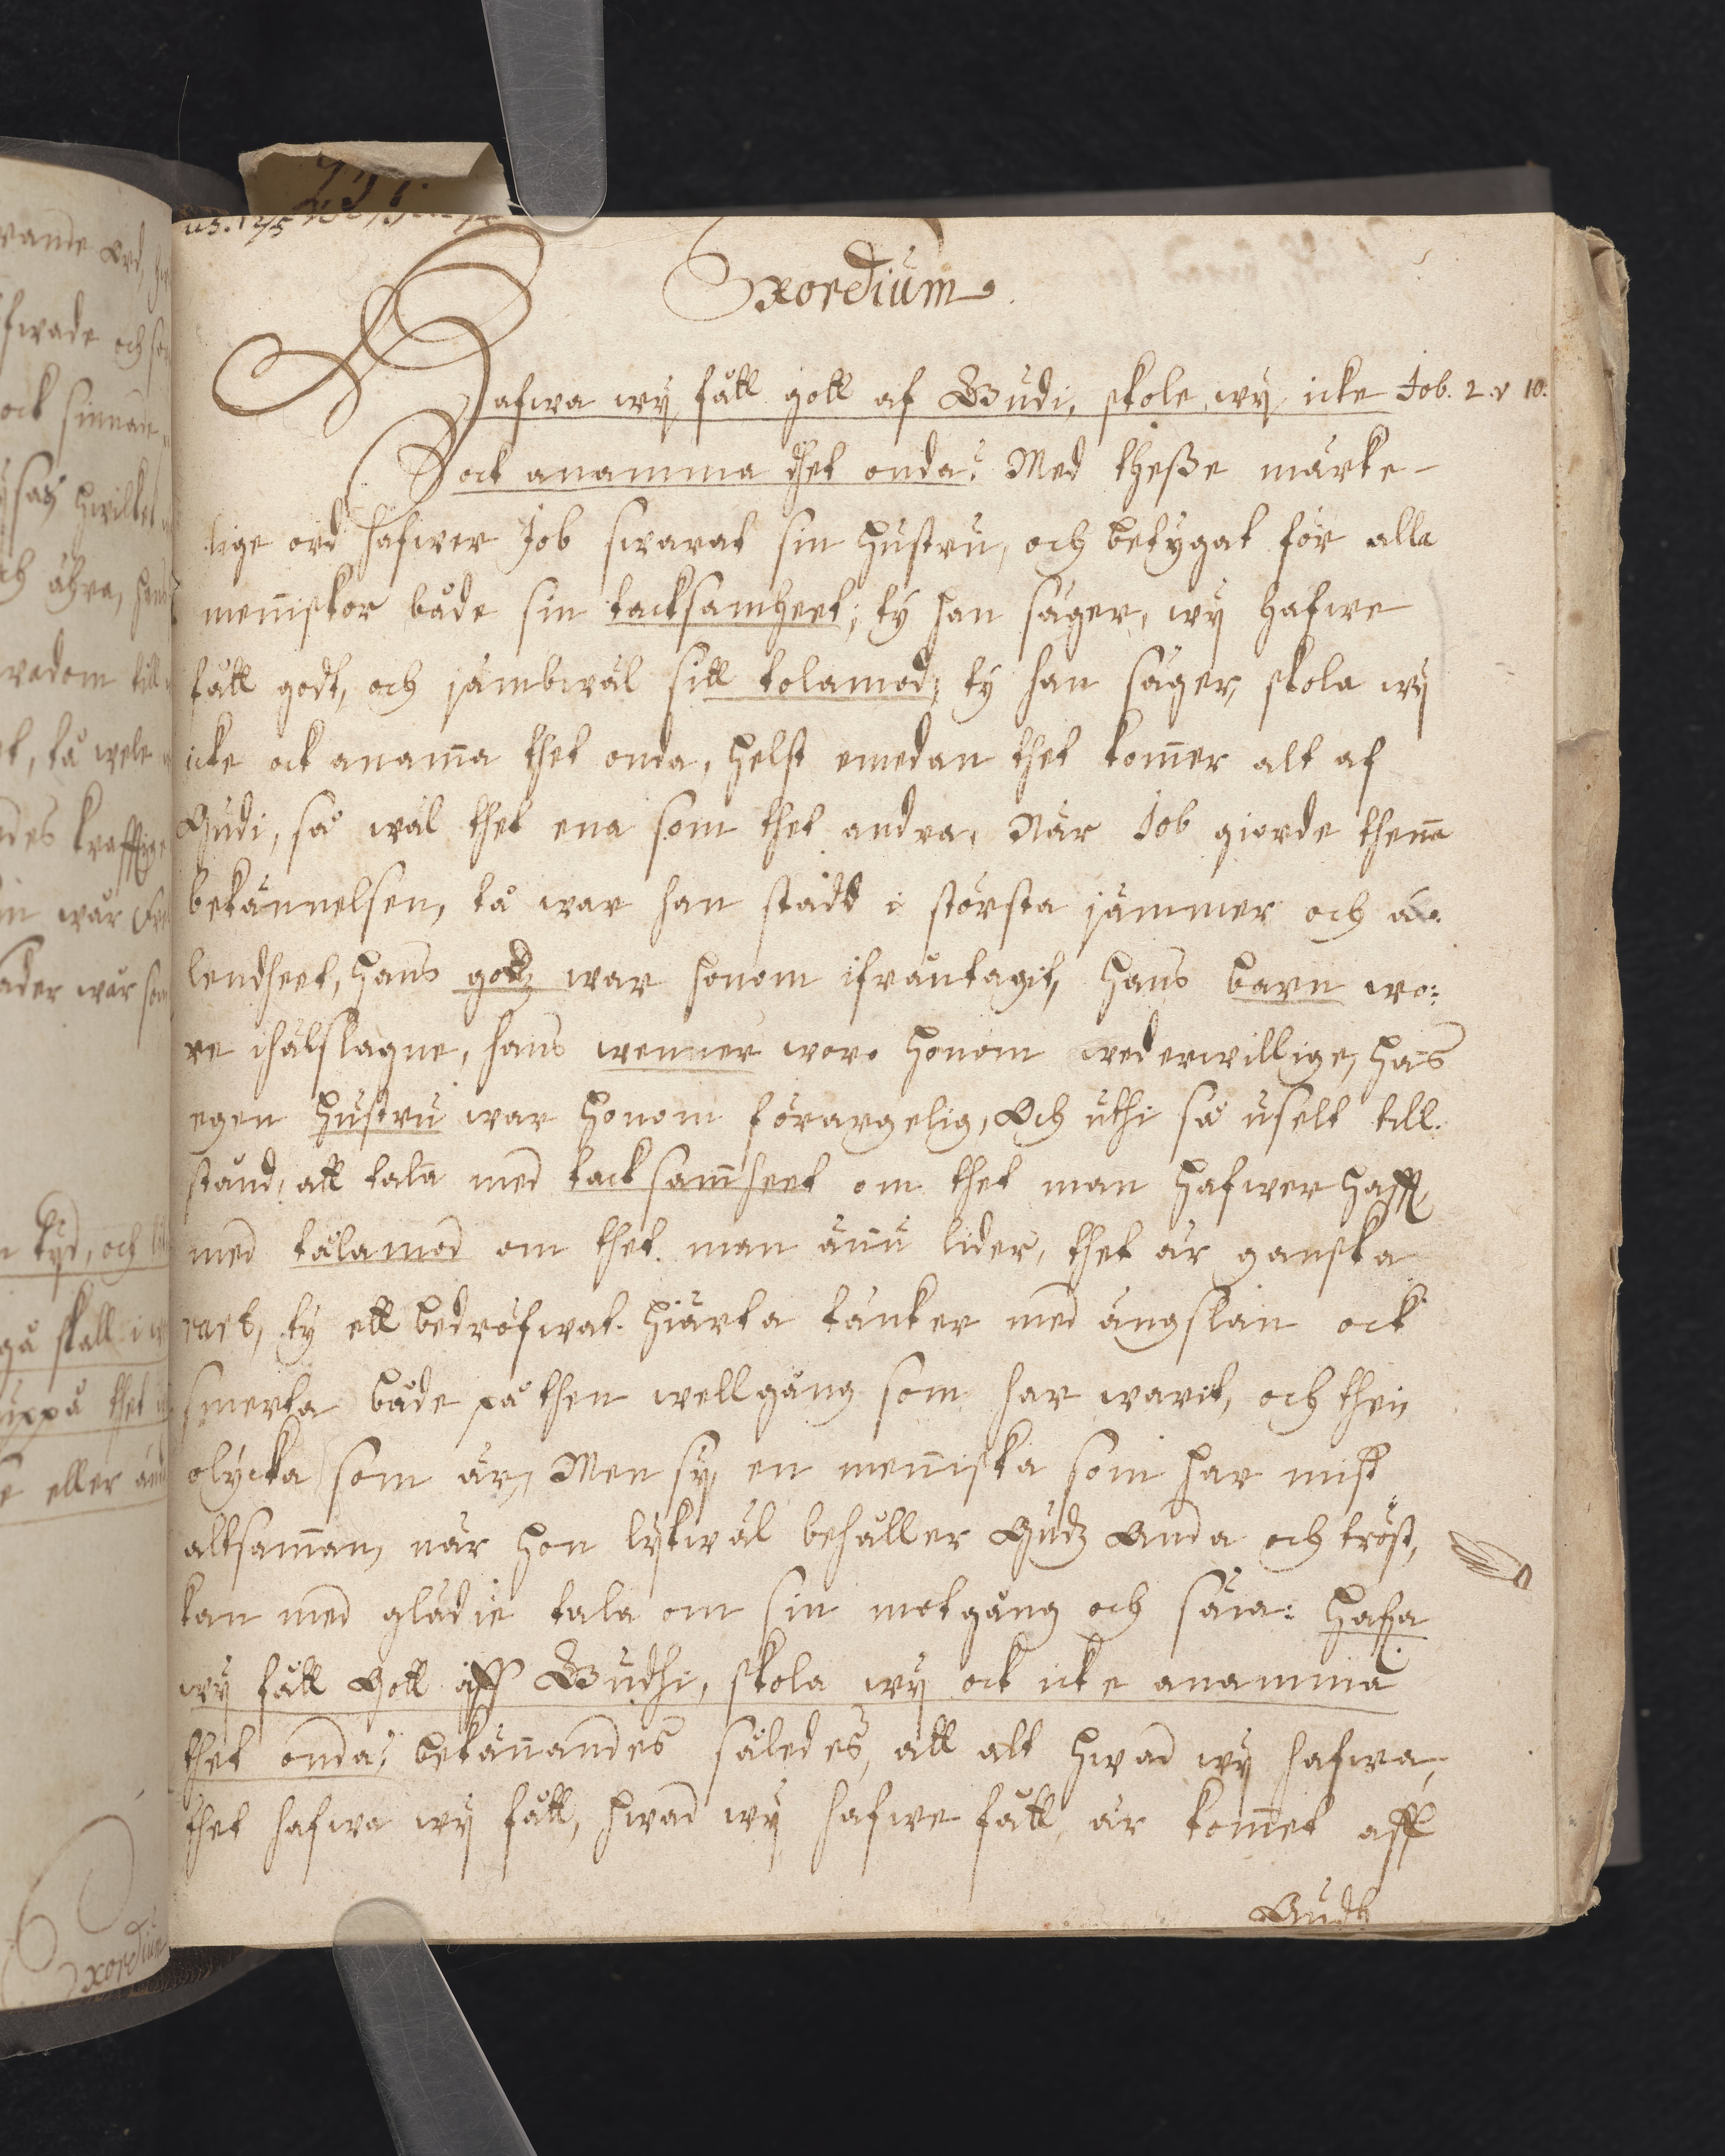 Exordium.
Hafwa wy fått gott af Gudi, skole wy icke Job. 2. v 10.
ock anamma thet onda? Med theße märke-
lige ord hafwer Job swarat sin hustru, och betygat för alla
menniskor både sin tacksamheet; ty han säger, wy hafwe
fått godt, och jämbwäl sitt tolamod; ty han säger, skola wy
icke ock anam̅a thet onda, helst emedan thet kom̅er alt af
Gudi, så wäl thet ena som thet andra, När Job giorde then̅a
bekännelsen, tå war han stadd i största jämmer och ä-
lendheet, hans godz war honom ifråntagit, hans barn wo:
re ihälslagne, hans wenner woro honom wederwillige, hans
egen hustru war honom förargelig, Och uthi så uselt till-
stånd, att tala med tacksam̅heet om thet man hafwer hafft,
med tålamod om thet man än̅u lider, thet är ganska
rart, ty ett bedröfwat hiärta tänker med ängslan ock
smerta både på then wellgång som har warit, och then
olycka som är, Men sy, en men̅iska som har mist
altsam̅an, när hon lykwäl behåller Gudz Anda och tröst,
kan med glädie tala om sin motgång och säia: Hafa
wy fått Gott aff Gudhi, skola wy ock icke anamma
thet onda? bekän̅andes således, att alt hwad wy hafwa,
thet hafwa wy fått, hwad wy hafwe fått, är kom̅et aff
Gudh